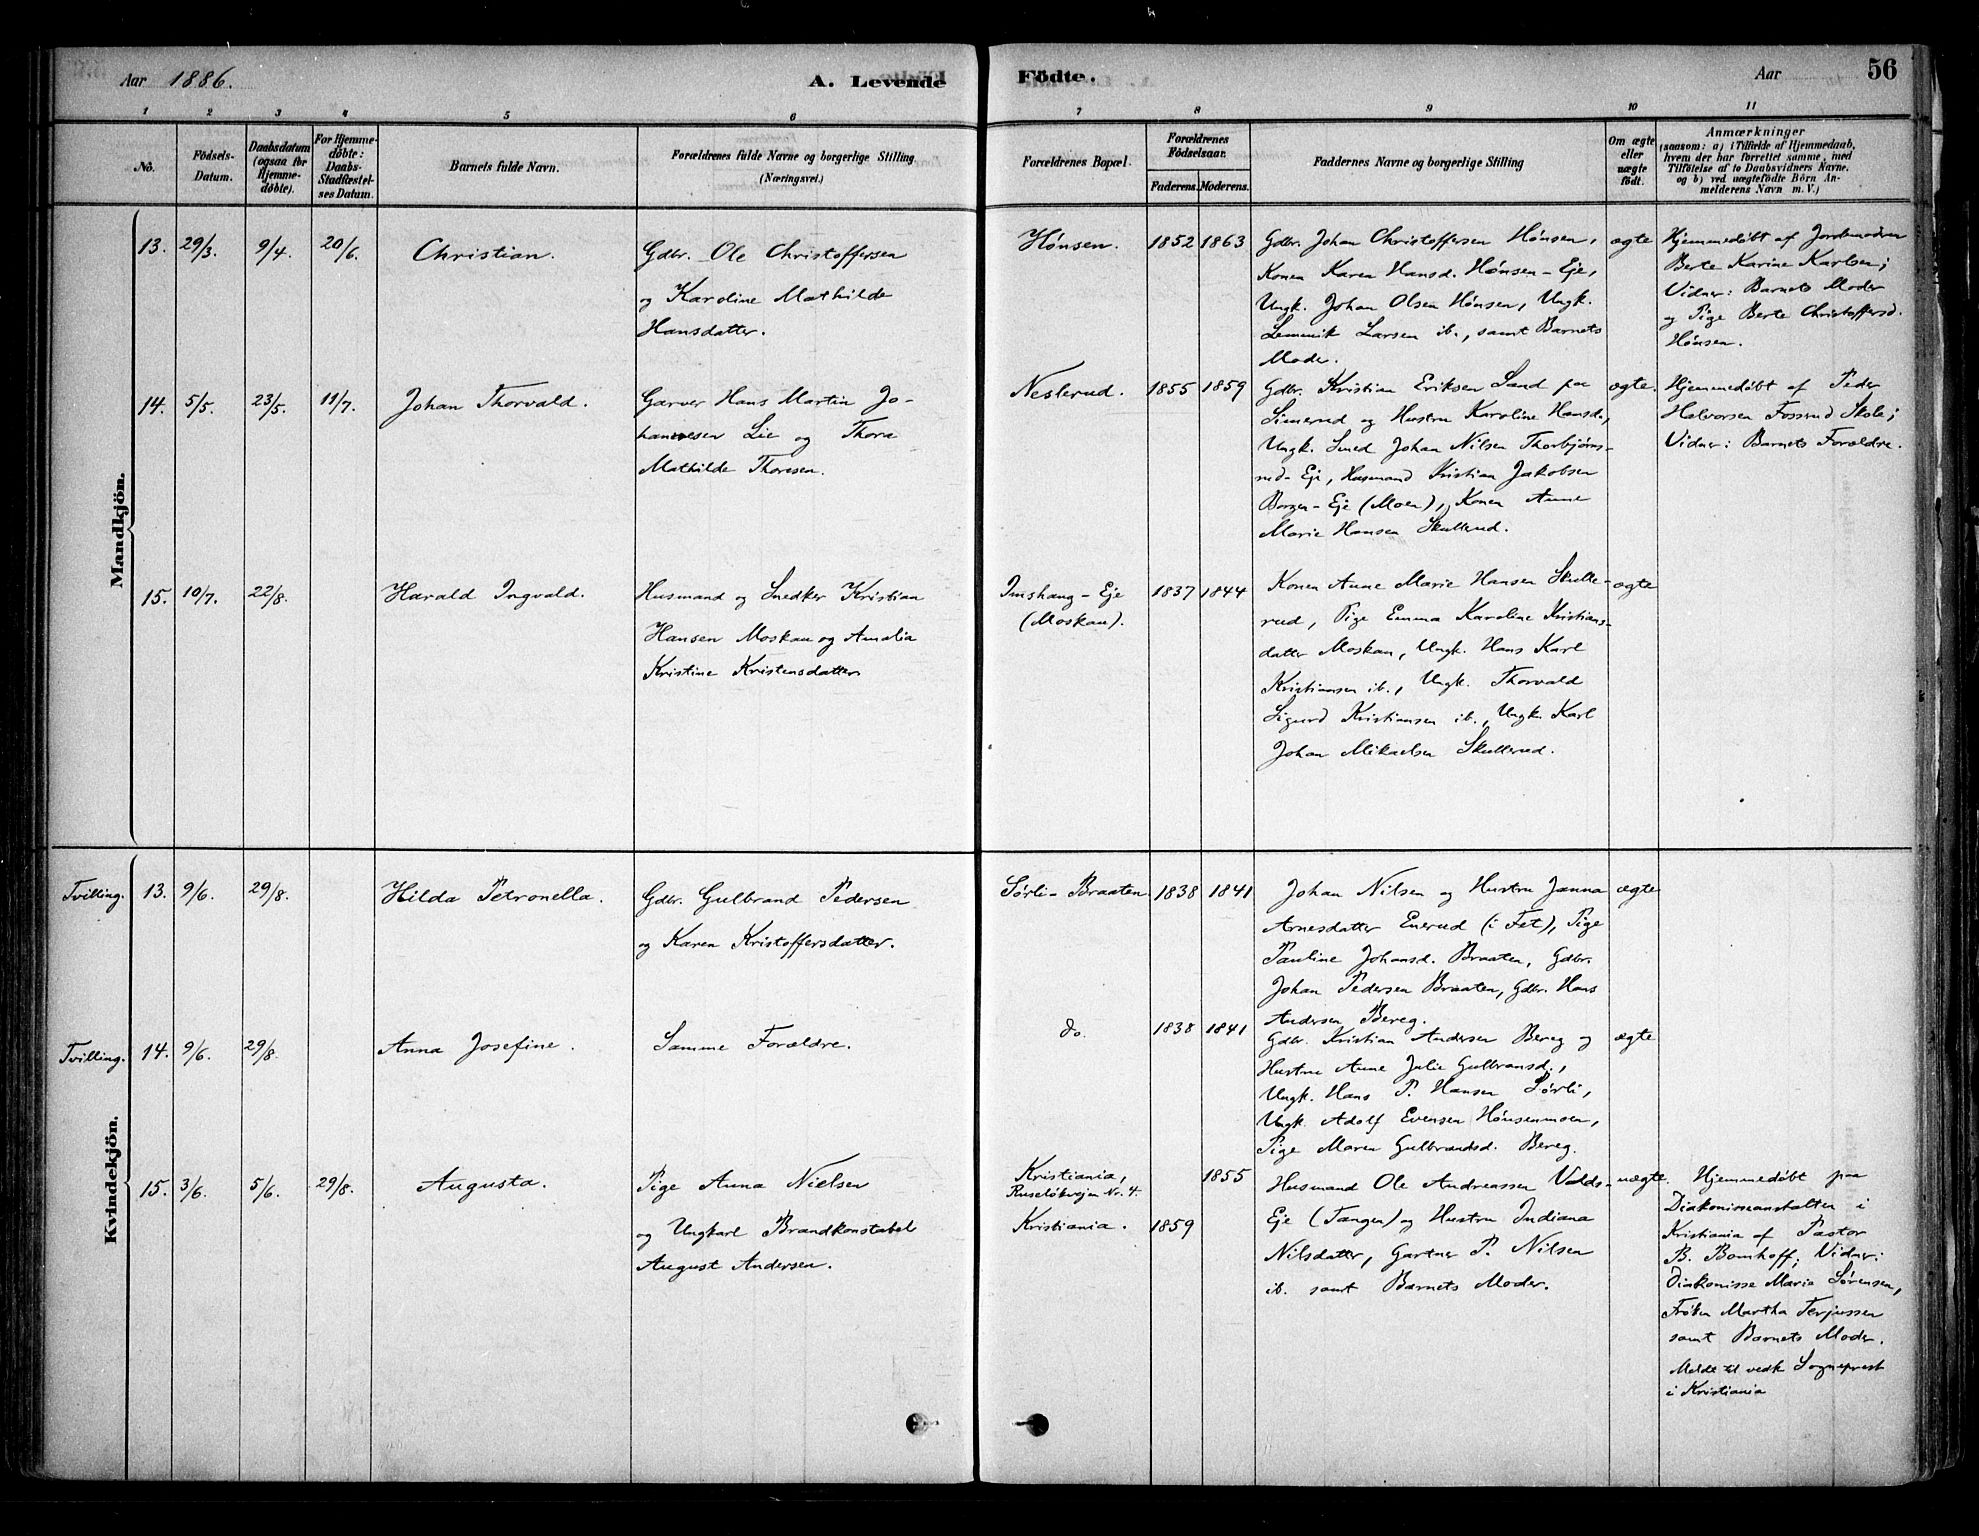 Aar 1886.
A. Levende
Födte.
Aar
56
1 2 3 4 5 6 7 8 9 10 11
No.
Födsels-
Datum.
Daabsdatum
(ogsaa for
Hjemme-
döbte).
For Hjemme-
döbte:
Daabs-
Stadfæstel-
ses Datum.
Barnets fulde Navn.
Forældrenes fulde Navne og borgerlige Stilling
(Næringsvei.)
Forældrenes Bopæl.
Forældrenes
Födselsaar.
Faderens. Moderens.
Faddernes Navne og borgerlige Stilling
Om ægte
eller
uægte
födt.
Anmærkninger
(saasom: a) i Tilfælde af Hjemmedaab,
hvem der har forrettet samme, med
Tilföielse af to Daabsvidners Navne.
og b) ved uægtefödte Börn An-
melderens Navn m. V.)
Mandkjön.
13. 29/3. 9/4. 20/6. Christian.
Gdbr. Ole Christoffersen
og Karoline Mathilde
Hansdatter.
Hønsen. 1852 1863
Gdbr. Johan Christoffersen Hønsen,
Konen Karen Hansd. Hønsen-Eje,
Ungk. Johan Olsen Hønsen, Ungk.
Lemmik Larsen ib., samt Barnets
Moder.
ægte
Hjemmedøbt af Jordemoderen
Berte Karine Karlsen;
Vidner: Barnets Moder
og Pige Berte Christoffersd.
Hønsen.
14. 5/5. 23/5. 11/7. Johan Thorvald.
Garver Hans Martin Jo-
hannesen Lie og Thora
Mathilde Thoresen.
Neslerud. 1855 1859
Gdbr. Kristian Eriksen Sand paa
Simerud og Hustru Karoline Hansd.,
Ungk. Smed Johan Nilsen Thorbjørns-
rud-Eje, Husmand Kristian Jakobsen
Borgen-Eje (Moen), Konen Anne
Marie Hansen Skullerud.
ægte.
Hjemmedøbt af Peder
Halvorsen Fossrud Skole;
Vidner: Barnets Forældre.
15. 10/7. 22/8. Harald Ingvald.
Husmand og Snedker Kristian
Hansen Moskau og Amalia
Kristine Kristensdatter
Imshaug-Eje
(Moskau).
1837 1844
Konen Anne Marie Hansen Skulle-
rud, Pige Emma Karoline Kristians-
datter Moskau, Ungk. Hans Karl
Kristiansen ib., Ungk. Thorvald
Sigurd Kristiansen ib., Ungk. Karl
Johan Mikaelsen Skullerud.
ægte
Kvindekjön.
Tvilling. 13. 9/6. 29/8. Hilda Petronella.
Gdbr. Gulbrand Pedersen
og Karen Kristoffersdatter.
Sørli-Braaten 1838 1841
Johan Nilsen og Hustru Janna
Arnesdatter Enerud (i Fet), Pige
Pauline Johansd. Braaten, Gdbr.
Johan Pedersen Braaten, Gdbr. Hans
Andersen Bereg.
ægte
Tvilling. 14. 9/6. 29/8. Anna Josefine.
Samme Forældre.
do. 1838 1841
Gdbr. Kristian Andersen Bereg og
Hustru Anne Julie Gulbransd.,
Ungk. Hans P. Hansen Sørli,
Ungk. Adolf Evensen Hønsenmoen,
Pige Maren Gulbrandsd. Bereg.
ægte
15. 3/6. 5/6. 29/8. Augusta.
Pige Anna Nielsen
og Ungkarl Brandkonstabel
August Andersen.
Kristiania,
Ruseløkvejen No. 4.
Kristiania.
1855
1859
Husmand Ole Andreassen Volds-
Eje (Tangen) og Hustru Indiana
Nilsdatter, Gartner P. Nilsen
ib. samt Barnets Moder.
uægte.
Hjemmedøbt paa
Diakonisseanstalten i
Kristiania af Pastor
B. Bomhoff; Vidner:
Diakonisse Maria Sørensen,
Frøken Martha Terjussen
samt Barnets Moder.
Meldt til vedk Sogneprest
i Kristiania